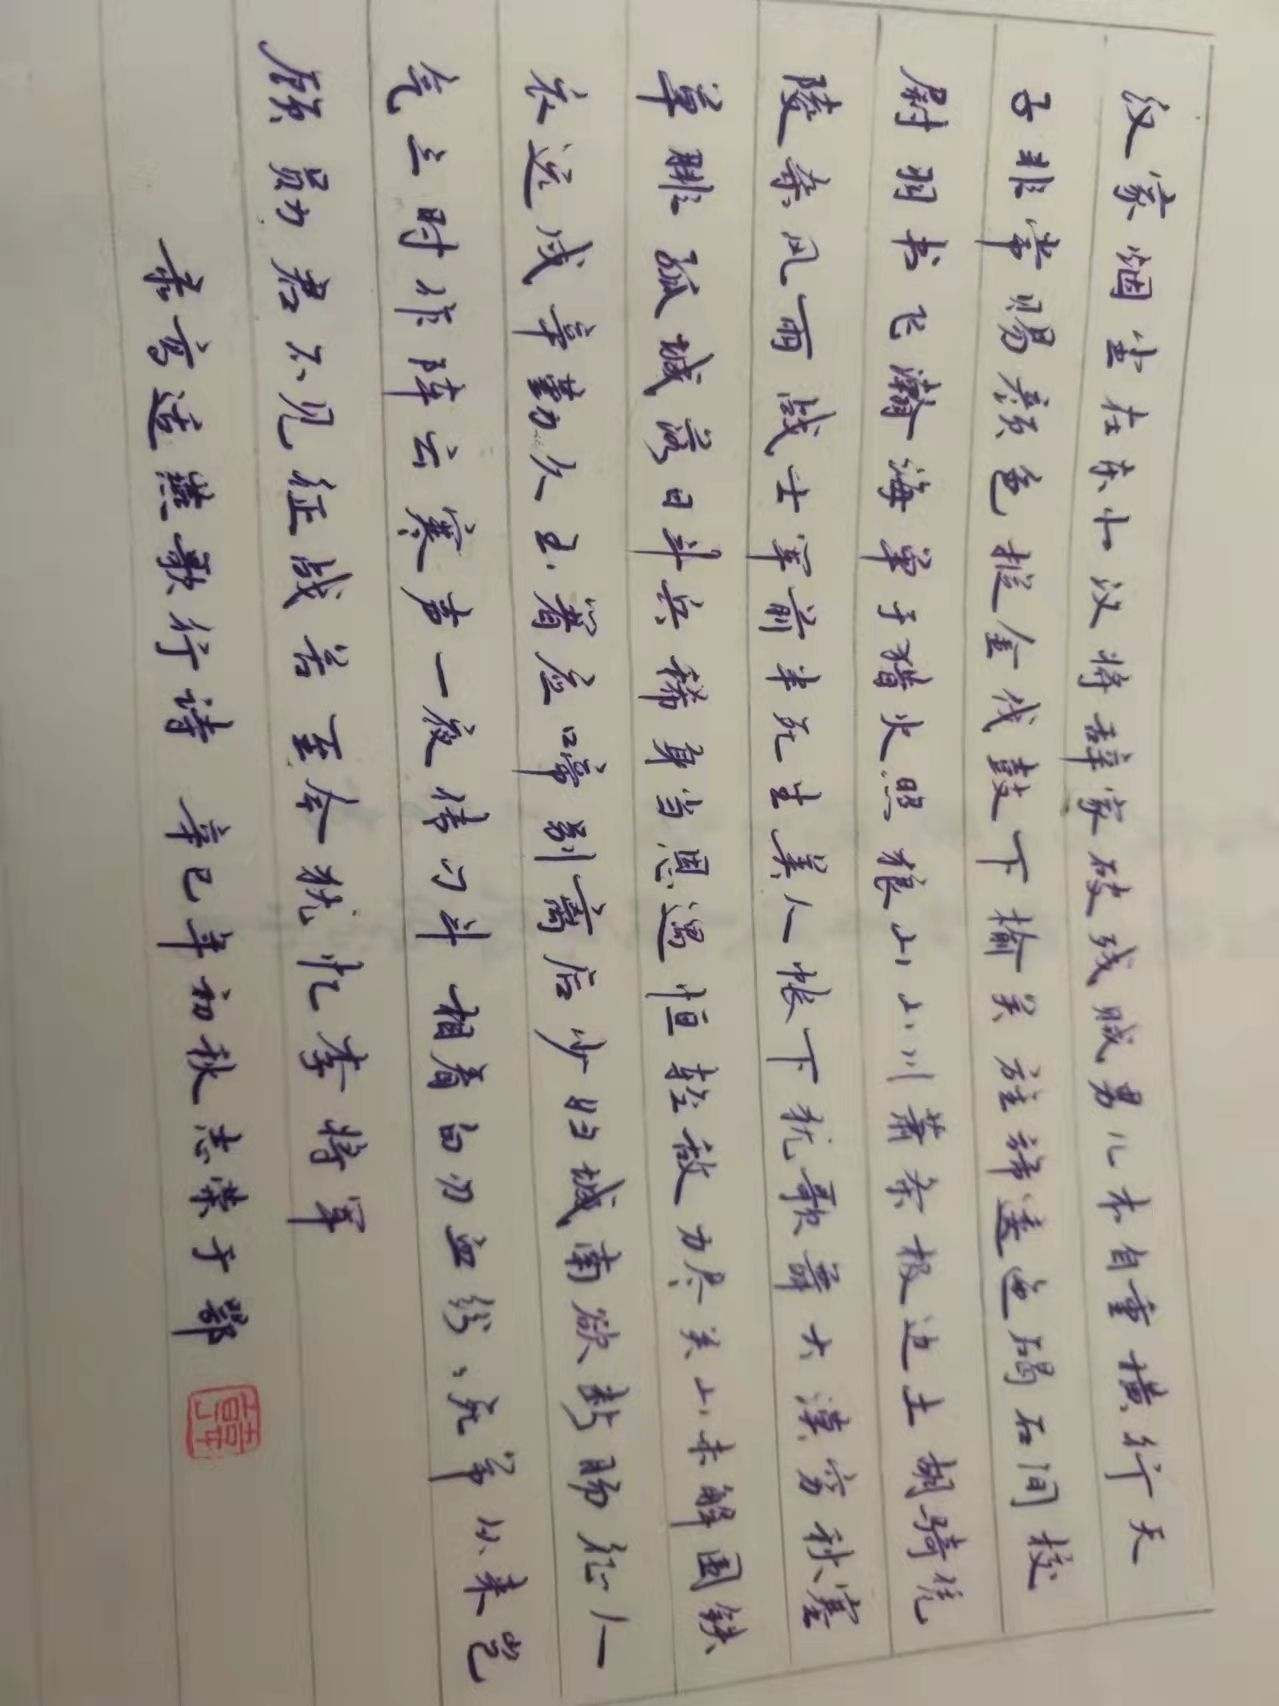 汉家烟尘在东北汉将辞家破残贼男儿本自重横行天
子非常赐颜色摐金伐鼓下榆关旌旆逶迤碣石间校
尉羽书飞瀚海单于猎火照狼山山川萧条极边土胡骑凭
陵杂风雨战士军前半死生美人帐下犹歌舞大漠穷秋塞
草腓孤城落日斗兵稀身当恩遇恒轻敌力尽关山未解围铁
衣远戍辛勤久玉箸应啼别离后少妇城南欲断肠征人
气三时作阵云寒声一夜传刁斗相看白刃血纷、死节从来岂
顾勋君不见征战苦至今犹忆李将军
录高适燕歌行诗 辛巳年初秋志荣于鄂